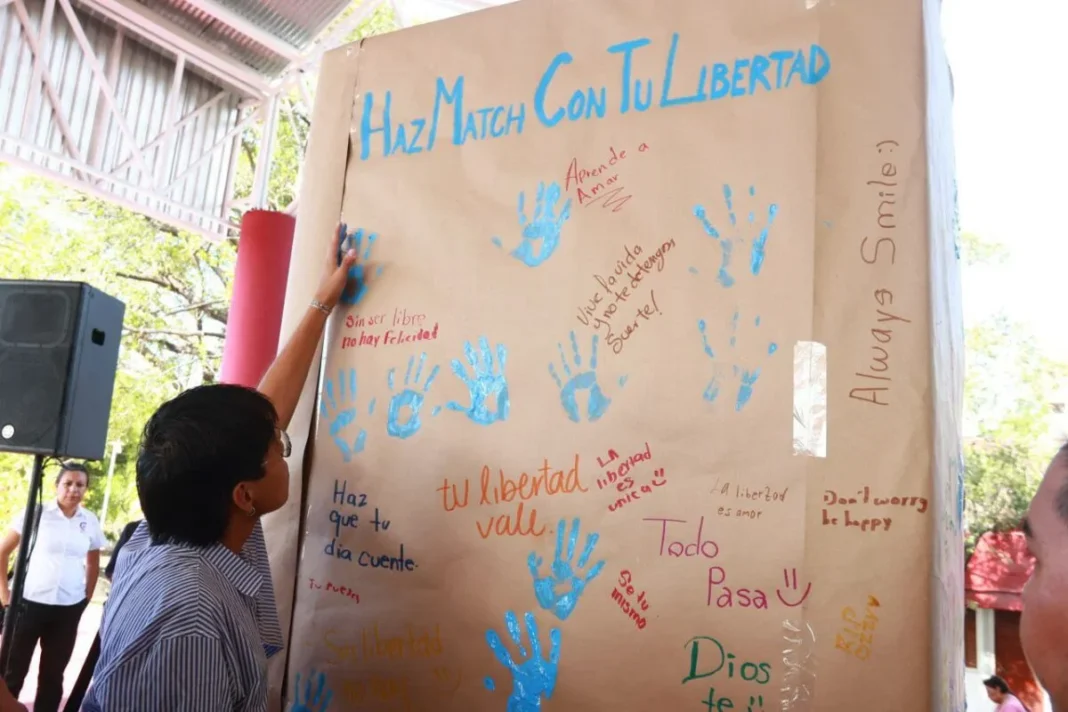 HAZ MATCH CON TU LIBERTAD
Aprende a
Amar
Always Smile:)
Vive la vida
y no te detengas
Suerte!
Sin ser libre
no hay Felicidad
tu libertad
vale.
LA
libertad
es
unica
La libertad
es amor
Don't worry
be happy
Haz
que tu
dia cuente.
Todo
Pasa
Se tu
mismo
Tu
RIP
OZZY
libertad
Dios
te